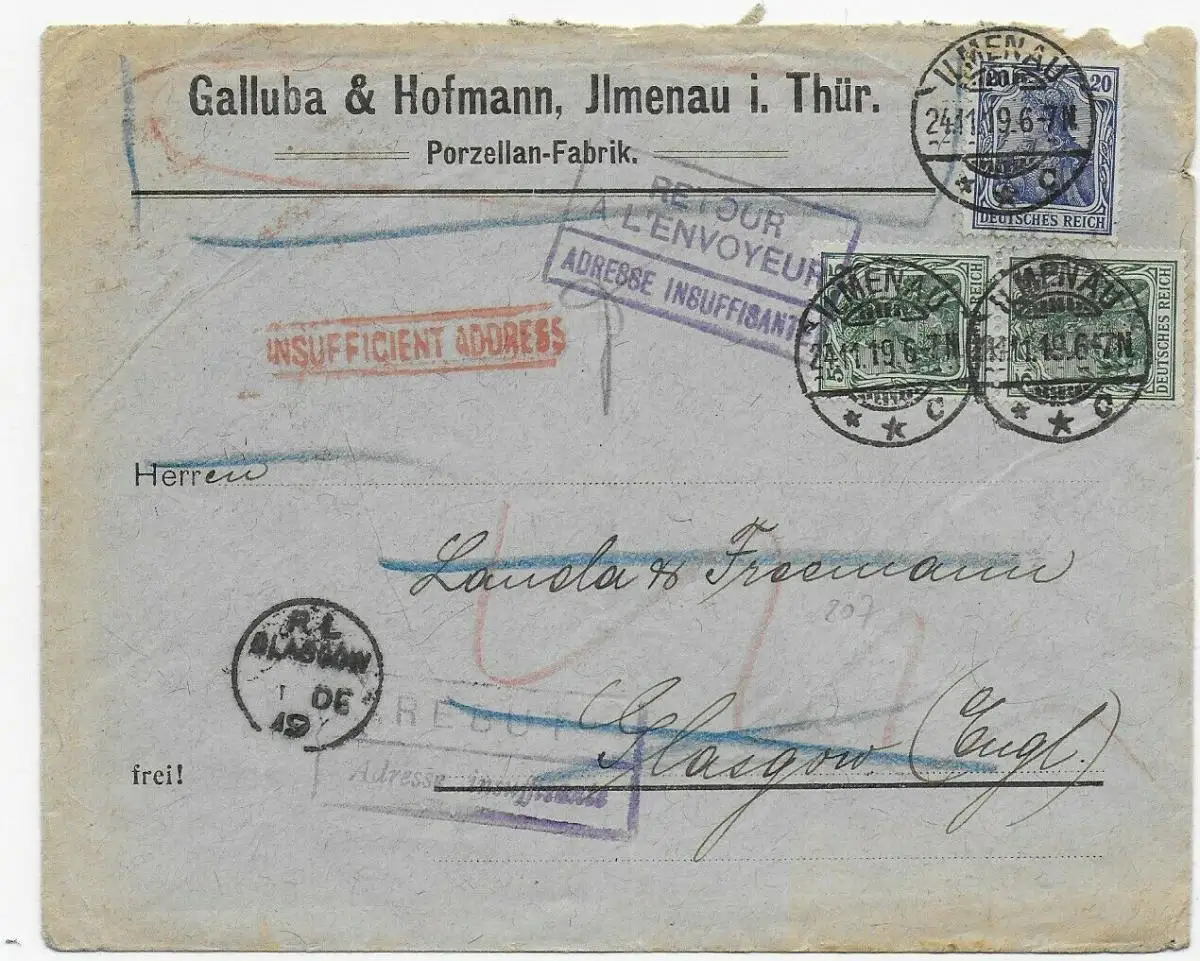 Galluba & Hofmann, Jlmenau i. Thür.
Porzellan-Fabrik.
ILMENAU
24.11.19.6-7N
* * C
20
DEUTSCHES REICH
RETOUR
A L'ENVOYEUR
ADRESSE INSUFFISANTE
ILMENAU
24.11.19.6-7N
* * C
REICH
ILMENAU
11.19.6-7N
* * C
DEUTSCHES REICH
INSUFFICIENT ADDRESS
Herren
Landa & Freemann
207
R.L.
GLASGOW
1 DE
19
REBUT
Adresse insuffisante
Glasgow (Engl.)
frei!